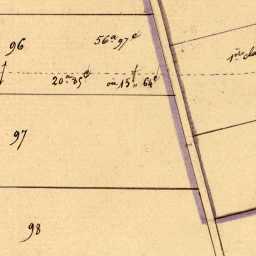 96
56ᵃ 97ᶜ
20ᵃ 85ᶜ ou 15 „ 64ᶜ
97
98